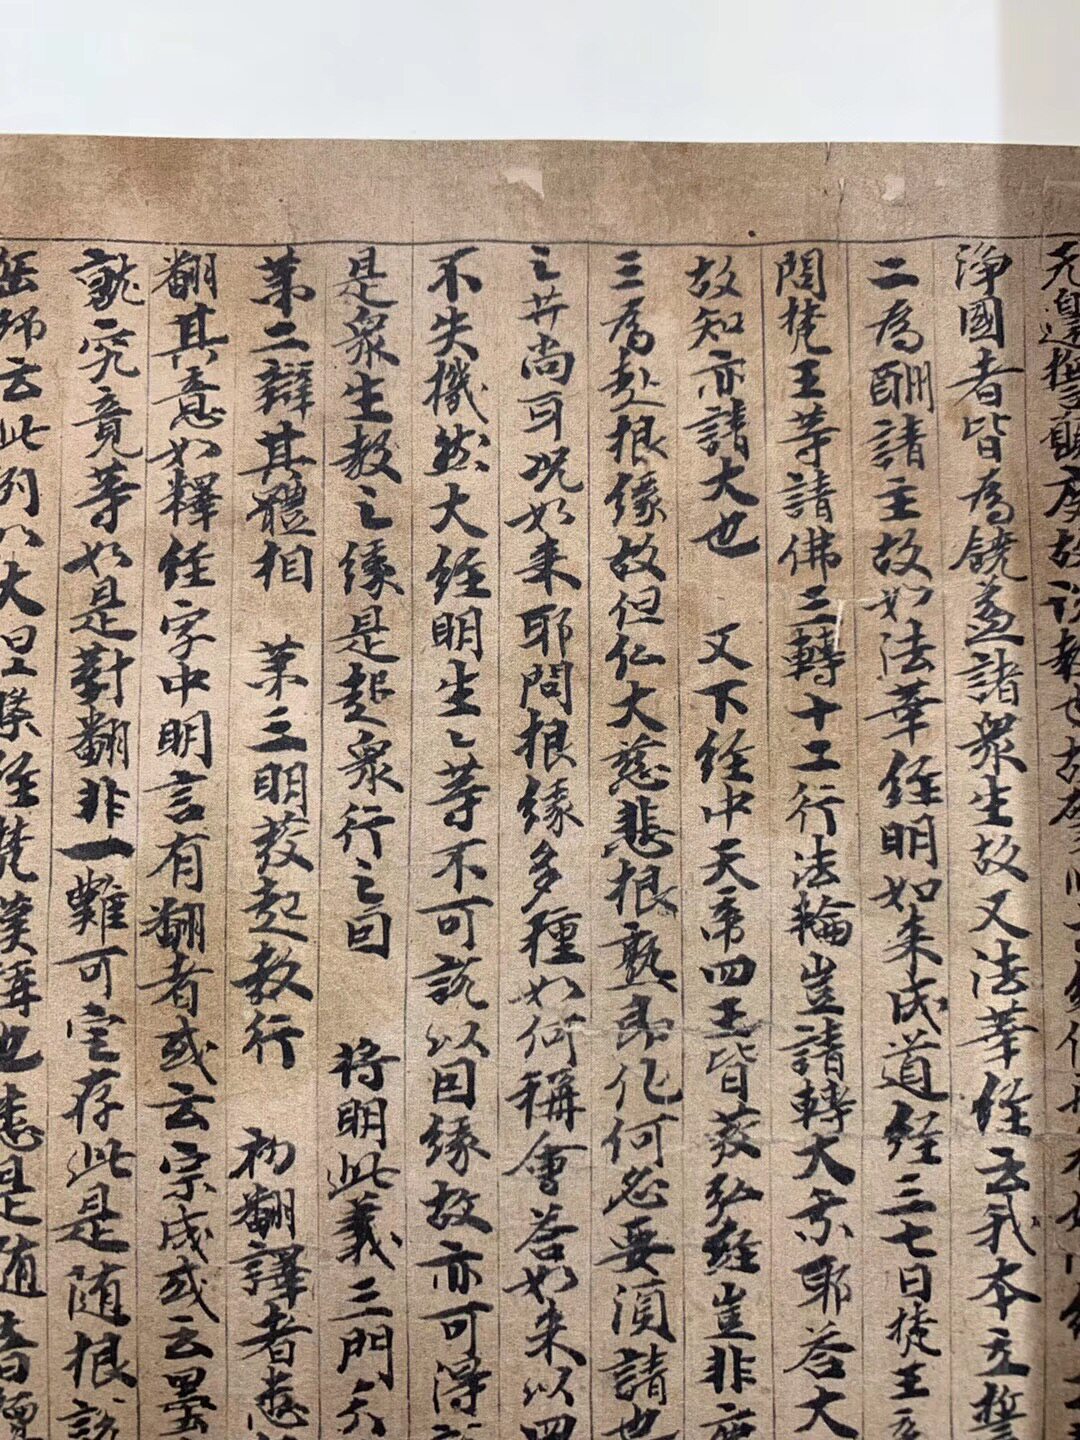 故說教也故
淨國者皆為饒益諸衆生故又法華経云我本立誓
二為酬請主故如法華経明如来成道経三七日梵王
問梵王等請佛三轉十二行法輪豈請轉大乘耶荅大
故知亦請大也 又下経中天帝四王皆發弘経豈非
三為赴根緣故但仏大慈悲根熟即化何必要須請也
之井尚可况如来耶問根緣多種如何稱會荅如来以四
不失機然大経明生〻等不可說以因緣故亦可得
是衆生教之緣是起衆行之因 将明此義三門
苐二辯其體相 苐三明發起教行 初翻譯者
翻其意如釋経字中明言有翻者或云宗成或云
就究竟等如是對翻非一難可定存此是随根說
師云此列以大 経梵漢 也 是随